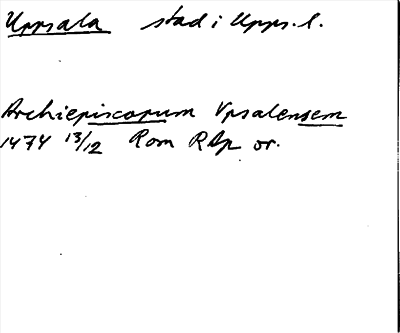 Uppsala stad i Upps. l.
Archiepiscopum Vpsalensem
1474 13/12 Rom RAp or.